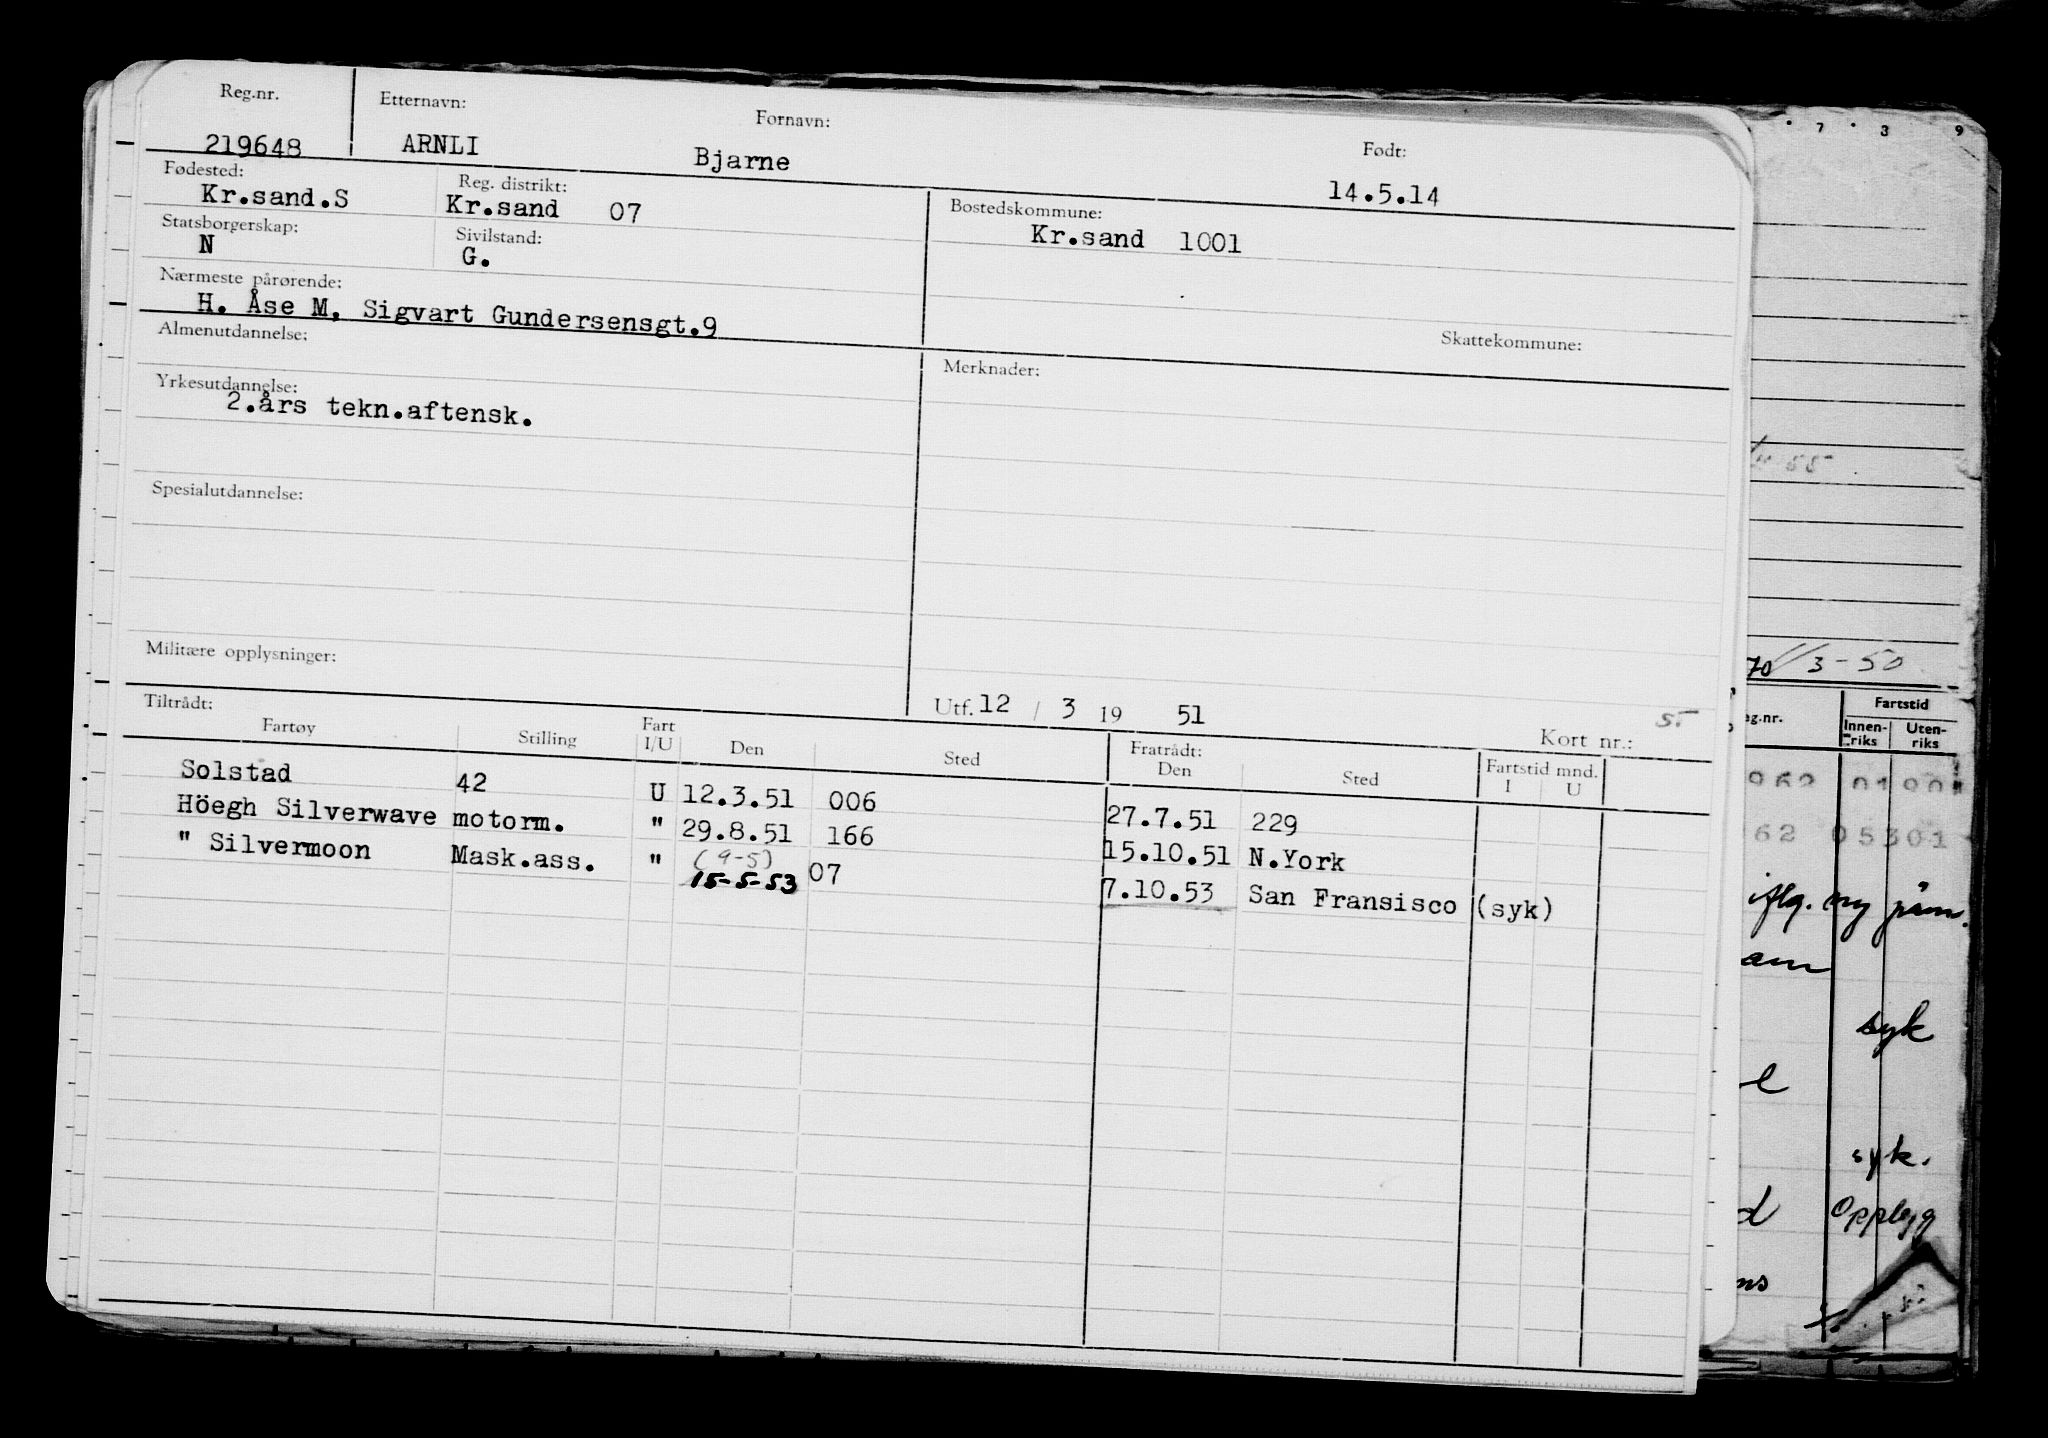 Reg.nr. Etternavn: Fornavn: Født:
219648 ARNLI Bjarne 14.5.14
Fødested: Reg. distrikt: Bostedskommune:
Kr.sand.S Kr.sand 07 Kr.sand 1001
Statsborgerskap: Sivilstand:
N G.
Nærmeste pårørende:
H. Åse M, Sigvart Gundersensgt.9
Skattekommune:
Almenutdannelse: Merknader:
Yrkesutdannelse:
2.års tekn.aftensk.
Spesialutdannelse:
Militære opplysninger:
Utf. 12 / 3 19 51 Kort nr.: 5.
Tiltrådt: Fratrådt:
Fartøy Stilling Fart I/U Den Sted Den Sted Fartstid mnd. I U
Solstad 42 U 12.3.51 006 27.7.51 229
Höegh Silverwave motorm. " 29.8.51 166 15.10.51 N.York
" Silvermoon Mask.ass. " (9-5) 15-5-53 07 7.10.53 San Fransisco (syk)
7 3 9
55
70 3-50
g.nr. Fartstid
Innen-riks Uten-riks
962 01901
62 05301
iflg. ny
am
syk
syk.
Opplegg